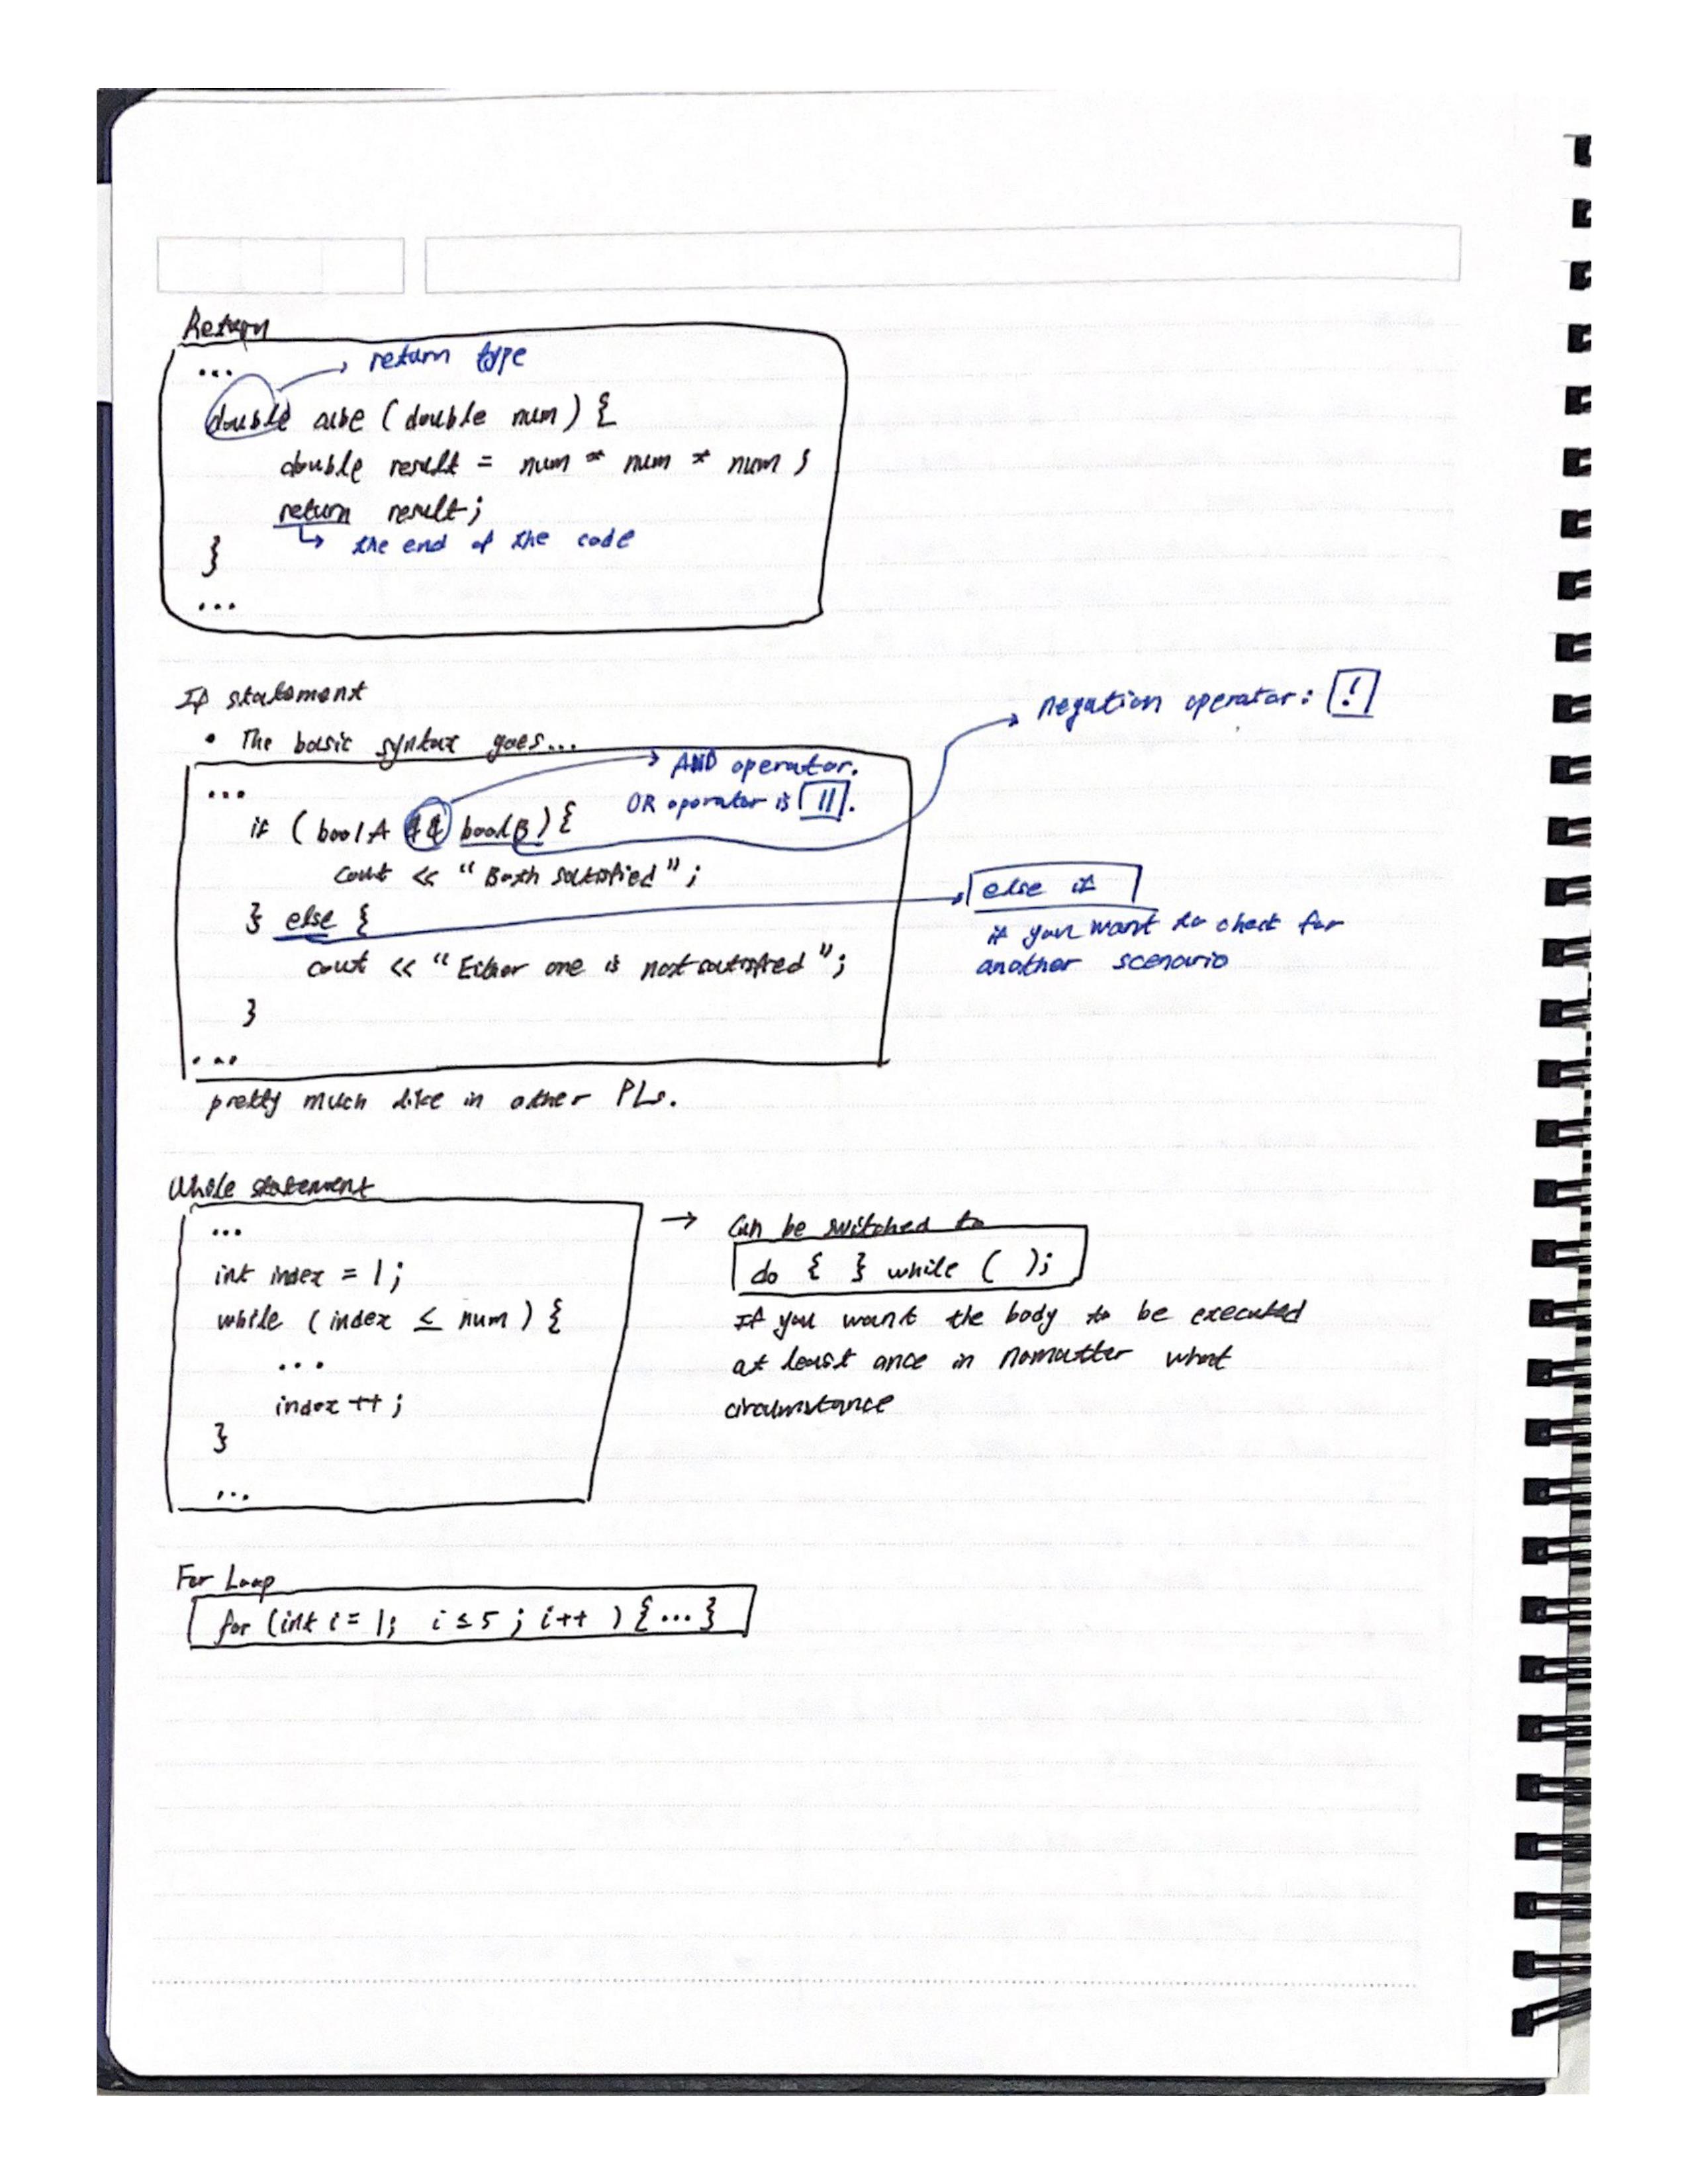 Return
...
return type
double cube (double num) {
double result = num * num * num ;
return result;
the end of the code
}
...
If statement
negation operator: !
• The basic syntax goes...
...
AND operator.
OR operator is || .
if (boolA && boolB) {
cout << "Both satisfied";
} else {
else if
if you want to check for
another scenario
cout << "Either one is not satisfied";
}
...
pretty much like in other PLs.
While statement
...
int index = 1;
while (index ≤ num) {
...
index++;
}
...
→ Can be switched to
do { } while ( );
If you want the body to be executed
at least once in nomatter what
circumstance
For Loop
for (int i = 1; i ≤ 5 ; i++ ) { ... }